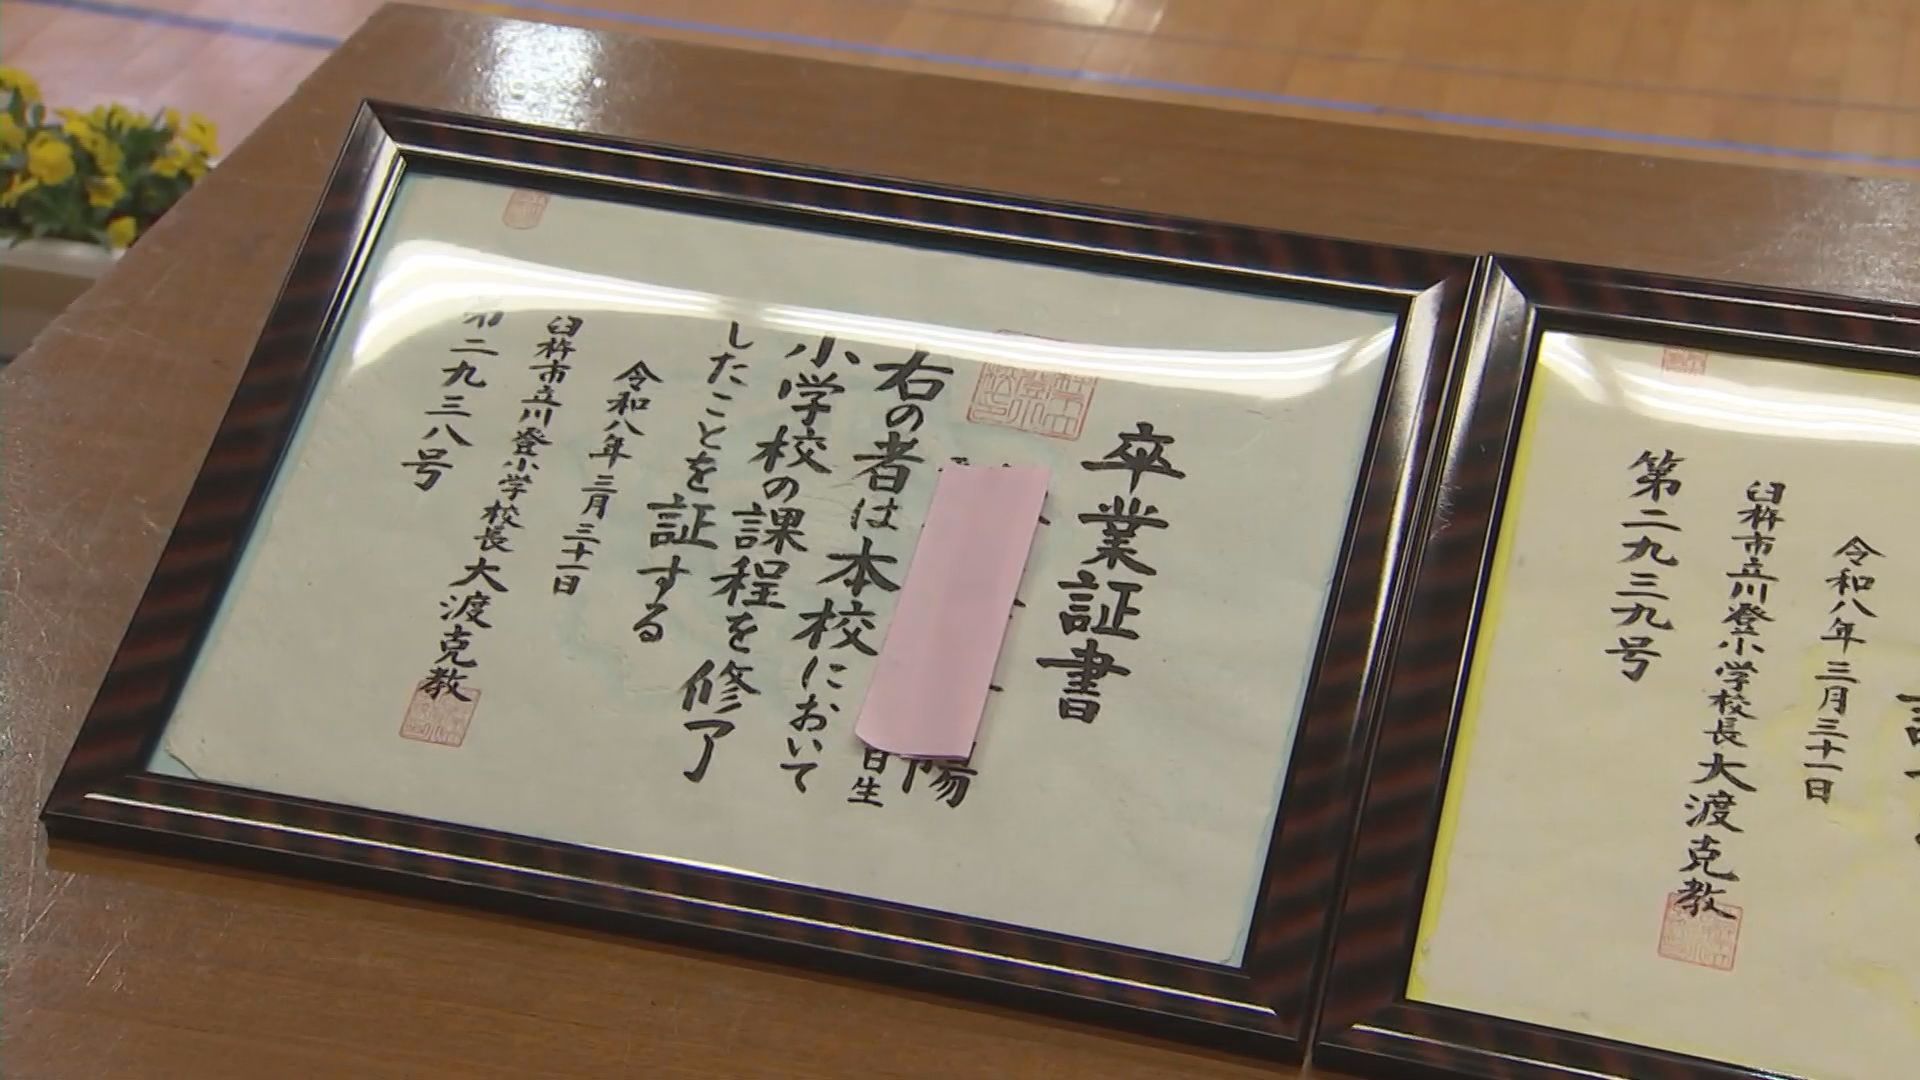 卒業証書
陽
日生
右の者は本校において
小学校の課程を修了
したことを証する
令和八年三月三十一日
臼杵市立川登小学校長大渡克教
第二九三八号
令和八年三月三十一日
臼杵市立川登小学校長大渡克教
第二九三九号